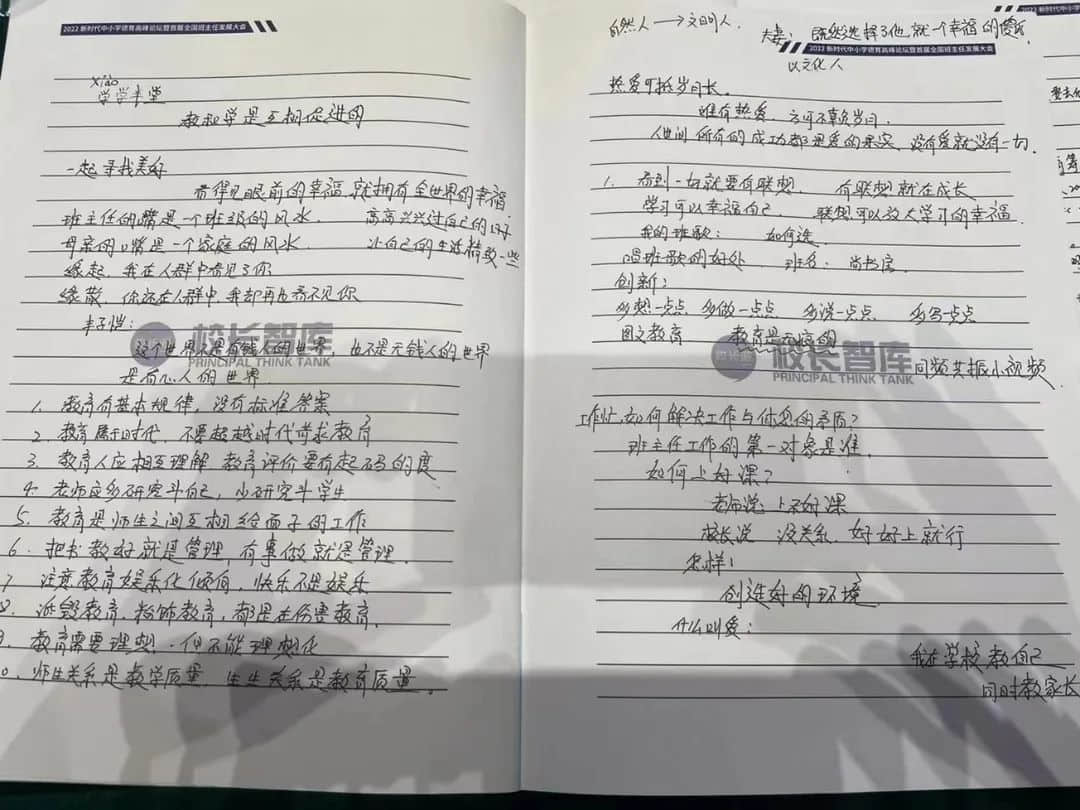 2022 新时代中小学德育高峰论坛暨首届全国班主任发展大会
xiào
学学半堂
教和学是互相促进的
一起寻找美好
看得见眼前的幸福,就拥有全世界的幸福.
班主任的嘴是一个班级的风水. 高高兴兴过自己的
母亲的嘴是一个家庭的风水. 让自己的生活精致一些
缘起,我在人群中看见了你
缘散,你还在人群中,我却再也看不见你
丰子恺:
这个世界不是有钱人的世界,也不是无钱人的世界
是有心人的世界.
校长智库
PRINCIPAL THINK TANK
1、教育有基本规律,没有标准答案
2、教育属于时代,不要超越时代苛求教育
3、教育人应相互理解 教育评价要有起码的度
4、老师应多研究斗自己,少研究斗学生
5、教育是师生之间互相给面子的工作
6、把书教好就是管理,有事做就是管理.
7 注意教育娱乐化倾向,快乐不是娱乐
8. 诋毁教育,粉饰教育,都是在伤害教育.
9. 教育需要理想,但不能理想化
0、师生关系是教学质量,生生关系是教育质量.
自然人→文明人. 夫妻:既然选择了他,就一个幸福的傻瓜
2022 新时代中小学德育高峰论坛暨首届全国班主任发展大会
以文化人
热爱可抵岁月长.
唯有热爱,方可不负岁月.
世间所有的成功都是爱的果实,没有爱就没有一切.
1. 看到一切就要有联想, 有联想就在成长
学习可以幸福自己. 联想可以放大学习的幸福.
我的班歌: 如何选.
唱班歌的好处. 班名: 尚书房.
创新:
多想一点点 多做一点点 多说一点点 多写一点点
图文教育 教育是无痕的
校长智库
PRINCIPAL THINK TANK
同频共振小视频.
工作忙,如何解决工作与休息的矛盾?
班主任工作的第一对象是谁.
如何上好课?
老师说 上不好课
校长说 没关系,好好上就行
怎样!
创造好的环境
什么叫爱:
我在学校教自己
同时教家长